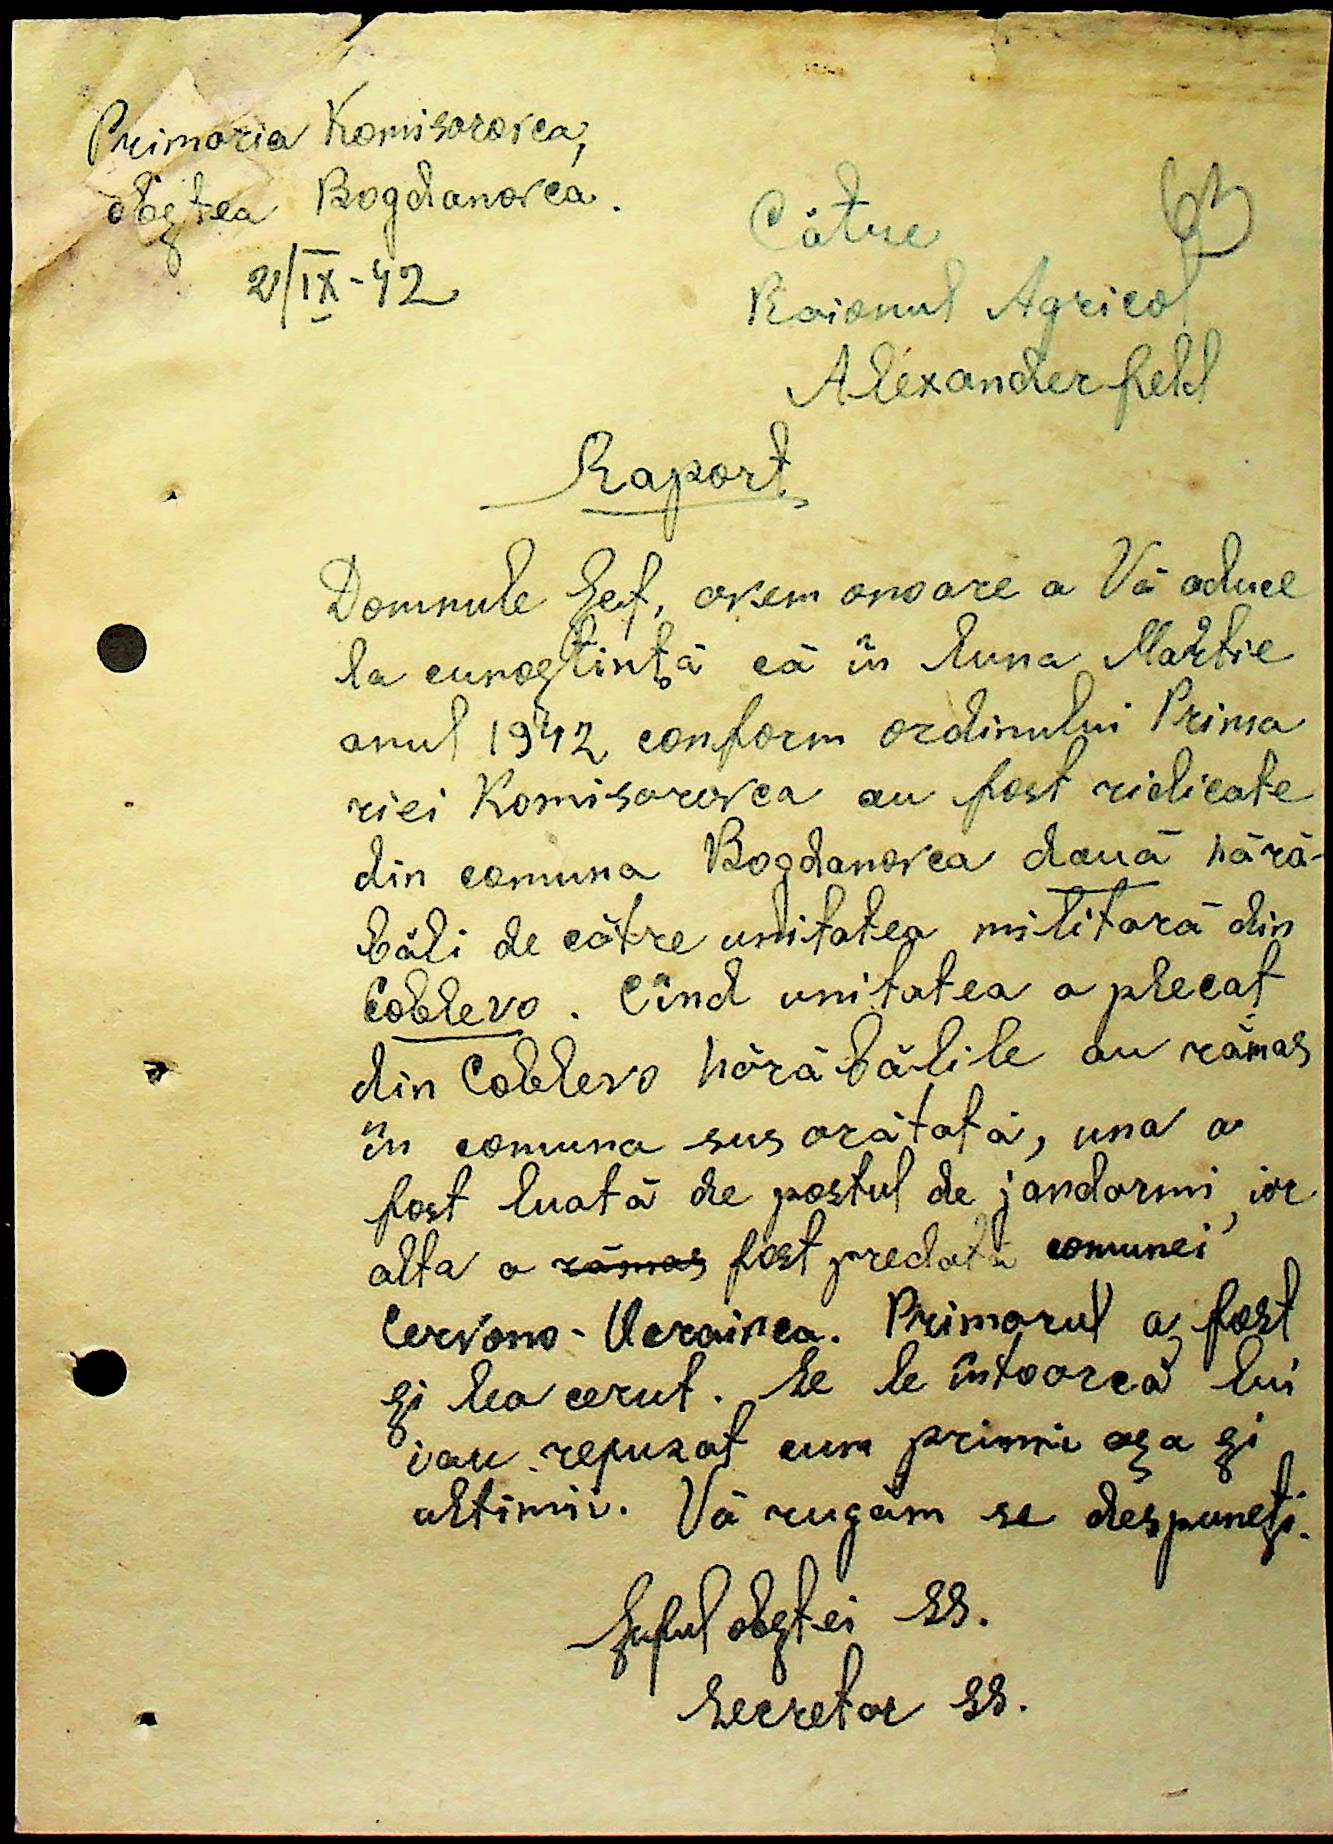 Primaria Komisarovca,
obştea Bogdanovca.
2/IX-42
Către
Raionul Agricol
Alexanderfeld
Raport
Domnule Şef, avem onoare a Vă aduce
la cunoştinţă că în luna Martie
anul 1942 conform ordinului Prima
riei Komisarovca au fost ridicate
din comuna Bogdanovca două hără-
băli de către unitatea militară din
Coblevo. Cînd unitatea a plecat
din Coblevo hărăbălile au rămas
în comuna sus arătată, una a
fost luată de postul de jandarmi, iar
alta a rămas fost predată comunei
Cervono-Ucrainca. Primarul a fost
şi lea cerut. Se le întoarcă lui
iau repuzat cum primii aşa şi
ultimii. Vă rugăm se despuneţi.
Şeful obştei SS.
Secretar SS.